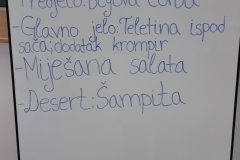 Predjelo:Begova čorba
-Glavno jelo:Teletina ispod
sača;dodatak krompir
-Miješana salata
-Desert:Šampita